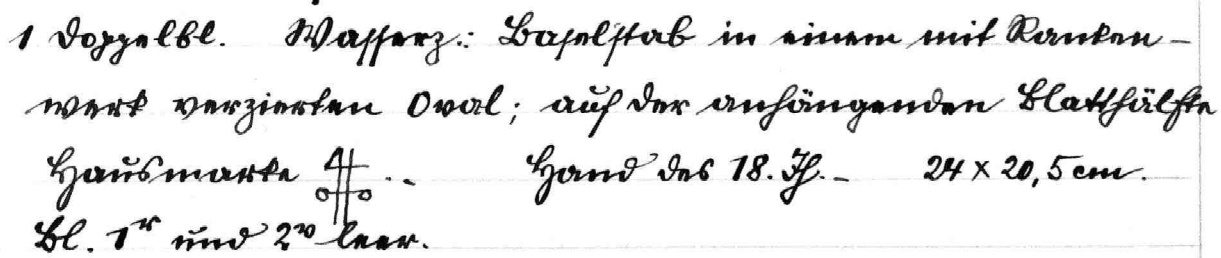 1 Doppelbl. Wasserz.: Baselstab in einem mit Ranken-
werk verzierten Oval; auf der anhängenden Blatthälfte
Hausmarke . - Hand des 18. Jh. - 24 x 20,5 cm.
Bl. 1r und 2v leer.